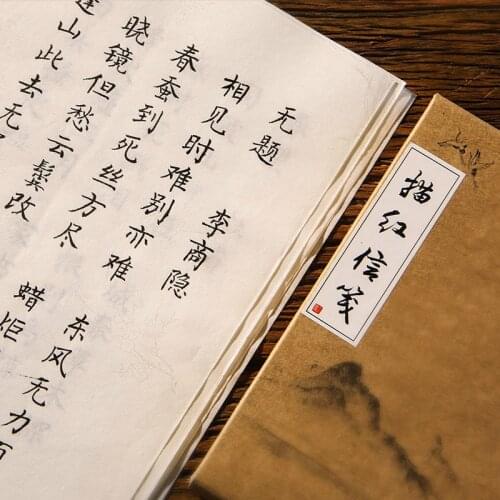 无题 李商隐
相见时难别亦难 东风无力
春蚕到死丝方尽 蜡炬
晓镜但愁云鬓改
山此去无
描红信笺